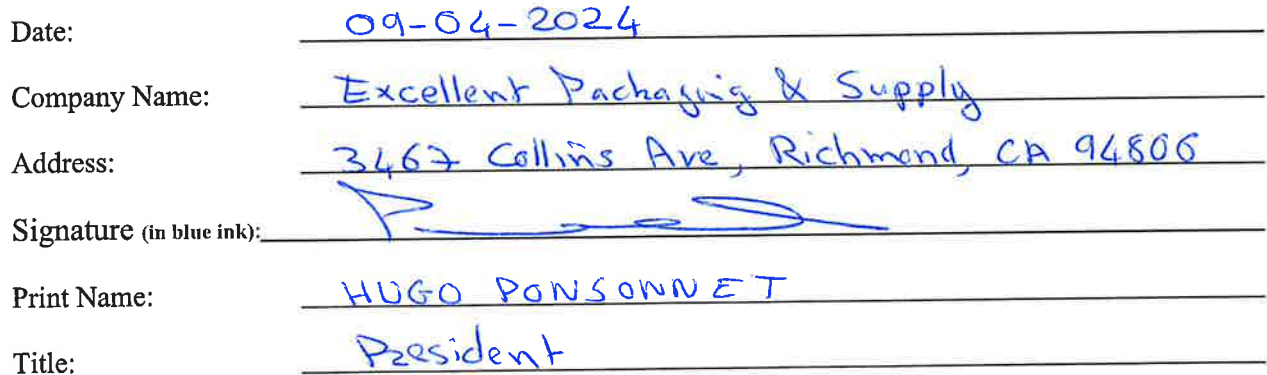 Date: 09-04-2024
Company Name: Excellent Packaging & Supply
Address: 3467 Collins Ave, Richmond, CA 94806
Signature (in blue ink):
Print Name: HUGO PONSONNET
Title: President